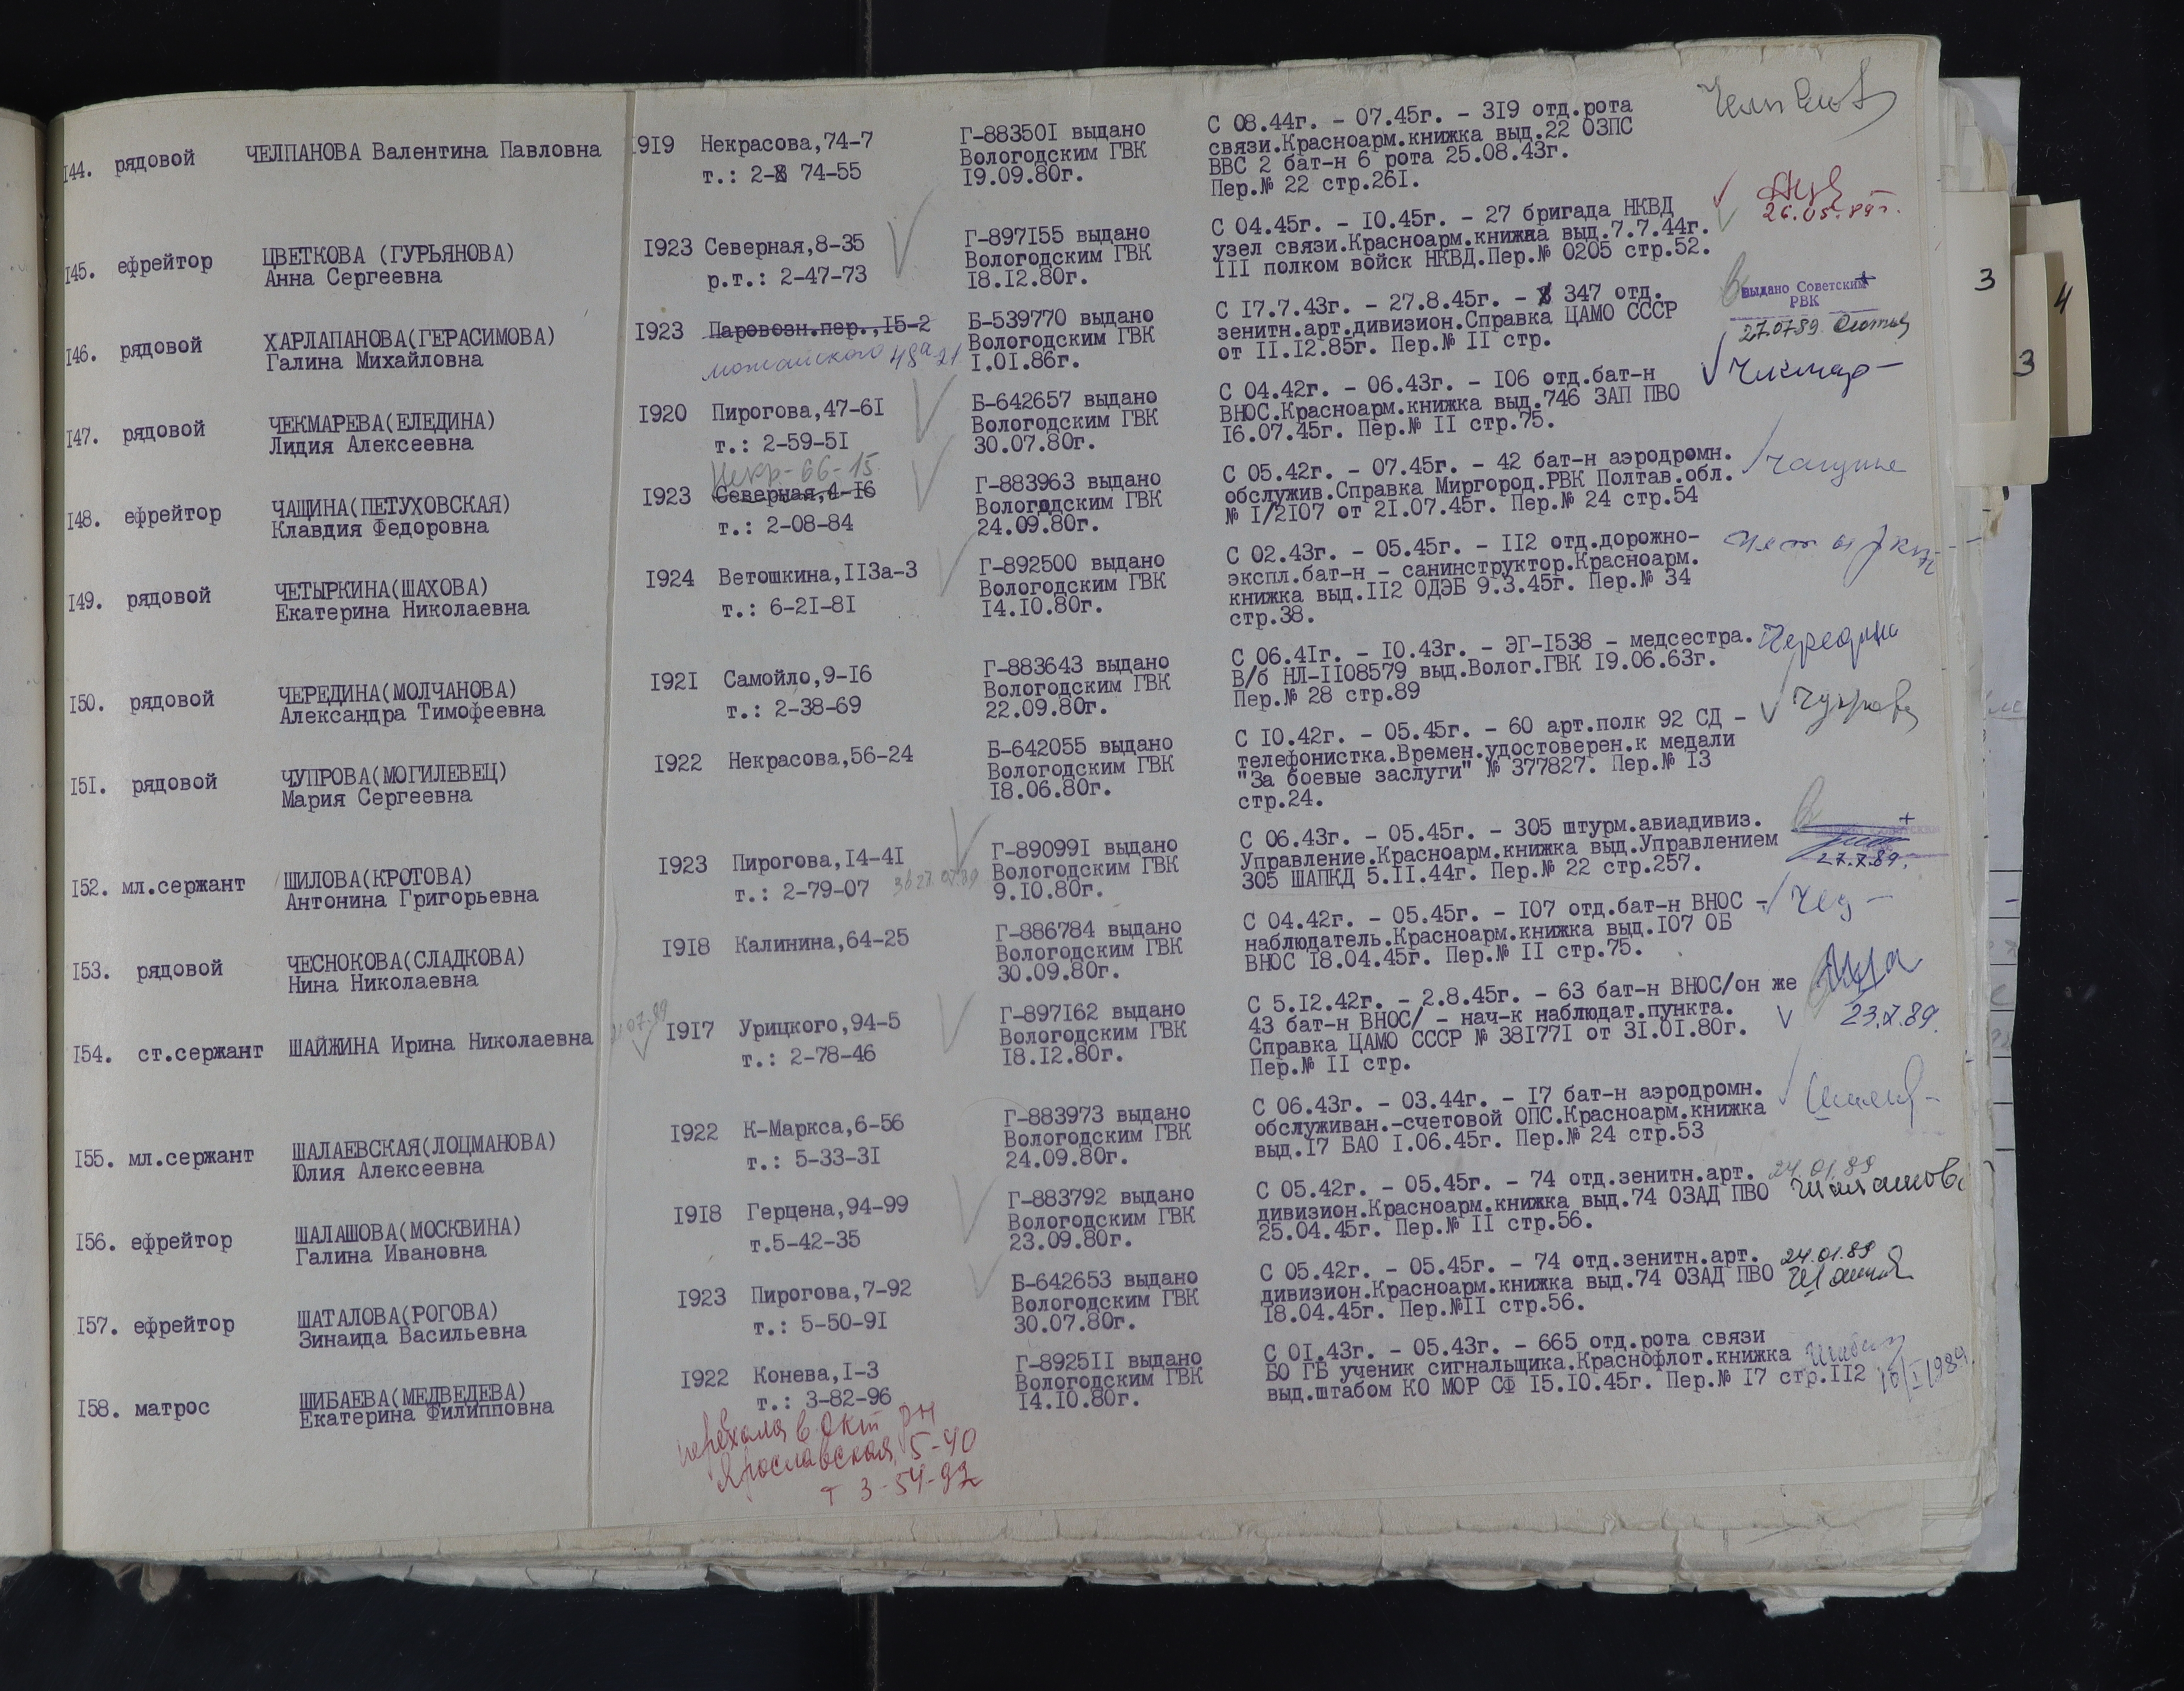 144. рядовой ЧЕЛПАНОВА Валентина Павловна 1919 Некрасова,74-7
т.: 2- 74-55
Г-883501 выдано
Вологодским ГВК
19.09.80г.
С 08.44г. - 07.45г. - 319 отд.рота
связи.Красноарм.книжка выд.22 ОЗПС
ВВС 2 бат-н 6 рота 25.08.43г.
Пер.№ 22 стр.261.
145. ефрейтор ЦВЕТКОВА (ГУРЬЯНОВА)
Анна Сергеевна
1923 Северная,8-35
р.т.: 2-47-73
Г-897155 выдано
Вологодским ГВК
18.12.80г.
С 04.45г. - 10.45г. - 27 бригада НКВД
узел связи.Красноарм.книжка выд.7.7.44г.
III полком войск НКВД.Пер.№ 0205 стр.52.
26.05.89г.
146. рядовой ХАРЛАПАНОВА(ГЕРАСИМОВА)
Галина Михайловна
1923 Паровозн.пер.,15-2
можайского 48а 21
Б-539770 выдано
Вологодским ГВК
1.01.86г.
С 17.7.43г. - 27.8.45г. - 347 отд.
зенитн.арт.дивизион.Справка ЦАМО СССР
от 11.12.85г. Пер.№ II стр.
выдано Советским
РВК
27.07.89.
147. рядовой ЧЕКМАРЕВА(ЕЛЕДИНА)
Лидия Алексеевна
1920 Пирогова,47-61
т.: 2-59-51
Б-642657 выдано
Вологодским ГВК
30.07.80г.
С 04.42г. - 06.43г. - 106 отд.бат-н
ВНОС.Красноарм.книжка выд.746 ЗАП ПВО
16.07.45г. Пер.№ II стр.75.
Чекмар-
148. ефрейтор ЧАЩИНА(ПЕТУХОВСКАЯ)
Клавдия Федоровна
Некр-66-15
1923 Северная,4-16
т.: 2-08-84
Г-883963 выдано
Вологодским ГВК
24.09.80г.
С 05.42г. - 07.45г. - 42 бат-н аэродромн.
обслужив.Справка Миргород.РВК Полтав.обл.
№ 1/2107 от 21.07.45г. Пер.№ 24 стр.54
149. рядовой ЧЕТЫРКИНА(ШАХОВА)
Екатерина Николаевна
1924 Ветошкина,113а-3
т.: 6-21-81
Г-892500 выдано
Вологодским ГВК
14.10.80г.
С 02.43г. - 05.45г. - 112 отд.дорожно-
экспл.бат-н - санинструктор.Красноарм.
книжка выд.112 ОДЭБ 9.3.45г. Пер.№ 34
стр.38.
150. рядовой ЧЕРЕДИНА(МОЛЧАНОВА)
Александра Тимофеевна
1921 Самойло,9-16
т.: 2-38-69
Г-883643 выдано
Вологодским ГВК
22.09.80г.
С 06.41г. - 10.43г. - ЭГ-1538 - медсестра.
В/б НЛ-1108579 выд.Волог.ГВК 19.06.63г.
Пер.№ 28 стр.89
Чередина
151. рядовой ЧУПРОВА(МОГИЛЕВЕЦ)
Мария Сергеевна
1922 Некрасова,56-24
Б-642055 выдано
Вологодским ГВК
18.06.80г.
С 10.42г. - 05.45г. - 60 арт.полк 92 СД -
телефонистка.Времен.удостоверен.к медали
"За боевые заслуги" № 377827. Пер.№ 13
стр.24.
Чупрова
152. мл.сержант ШИЛОВА(КРОТОВА)
Антонина Григорьевна
1923 Пирогова,14-41
т.: 2-79-07
Г-890991 выдано
Вологодским ГВК
9.10.80г.
С 06.43г. - 05.45г. - 305 штурм.авиадивиз.
Управление.Красноарм.книжка выд.Управлением
305 ШАПКД 5.11.44г. Пер.№ 22 стр.257.
27.7.89.
153. рядовой ЧЕСНОКОВА(СЛАДКОВА)
Нина Николаевна
1918 Калинина,64-25
Г-886784 выдано
Вологодским ГВК
30.09.80г.
С 04.42г. - 05.45г. - 107 отд.бат-н ВНОС -
наблюдатель.Красноарм.книжка выд.107 ОБ
ВНОС 18.04.45г. Пер.№ II стр.75.
154. ст.сержант ШАЙЖИНА Ирина Николаевна
1917 Урицкого,94-5
т.: 2-78-46
Г-897162 выдано
Вологодским ГВК
18.12.80г.
С 5.12.42г. - 2.8.45г. - 63 бат-н ВНОС/он же
43 бат-н ВНОС/ - нач-к наблюдат.пункта.
Справка ЦАМО СССР № 381771 от 31.01.80г.
Пер.№ II стр.
23.7.89.
155. мл.сержант ШАЛАЕВСКАЯ(ЛОЦМАНОВА)
Юлия Алексеевна
1922 К-Маркса,6-56
т.: 5-33-31
Г-883973 выдано
Вологодским ГВК
24.09.80г.
С 06.43г. - 03.44г. - 17 бат-н аэродромн.
обслуживан.-счетовой ОПС.Красноарм.книжка
выд.17 БАО 1.06.45г. Пер.№ 24 стр.53
156. ефрейтор ШАЛАШОВА(МОСКВИНА)
Галина Ивановна
1918 Герцена,94-99
т.5-42-35
Г-883792 выдано
Вологодским ГВК
23.09.80г.
С 05.42г. - 05.45г. - 74 отд.зенитн.арт.
дивизион.Красноарм.книжка выд.74 ОЗАД ПВО
25.04.45г. Пер.№ II стр.56.
24.01.89
157. ефрейтор ШАТАЛОВА(РОГОВА)
Зинаида Васильевна
1923 Пирогова,7-92
т.: 5-50-91
Б-642653 выдано
Вологодским ГВК
30.07.80г.
С 05.42г. - 05.45г. - 74 отд.зенитн.арт.
дивизион.Красноарм.книжка выд.74 ОЗАД ПВО
18.04.45г. Пер.№II стр.56.
24.01.89
158. матрос ШИБАЕВА(МЕДВЕДЕВА)
Екатерина Филипповна
1922 Конева,1-3
т.: 3-82-96
Г-892511 выдано
Вологодским ГВК
14.10.80г.
С 01.43г. - 05.43г. - 665 отд.рота связи
БО ГБ ученик сигнальщика.Краснофлот.книжка
выд.штабом КО МОР СФ 15.10.45г. Пер.№ 17 стр.112
16/I 1989.
перехала в Окт рн
Ярославская, 5-40
т 3-54-92
3
4
3